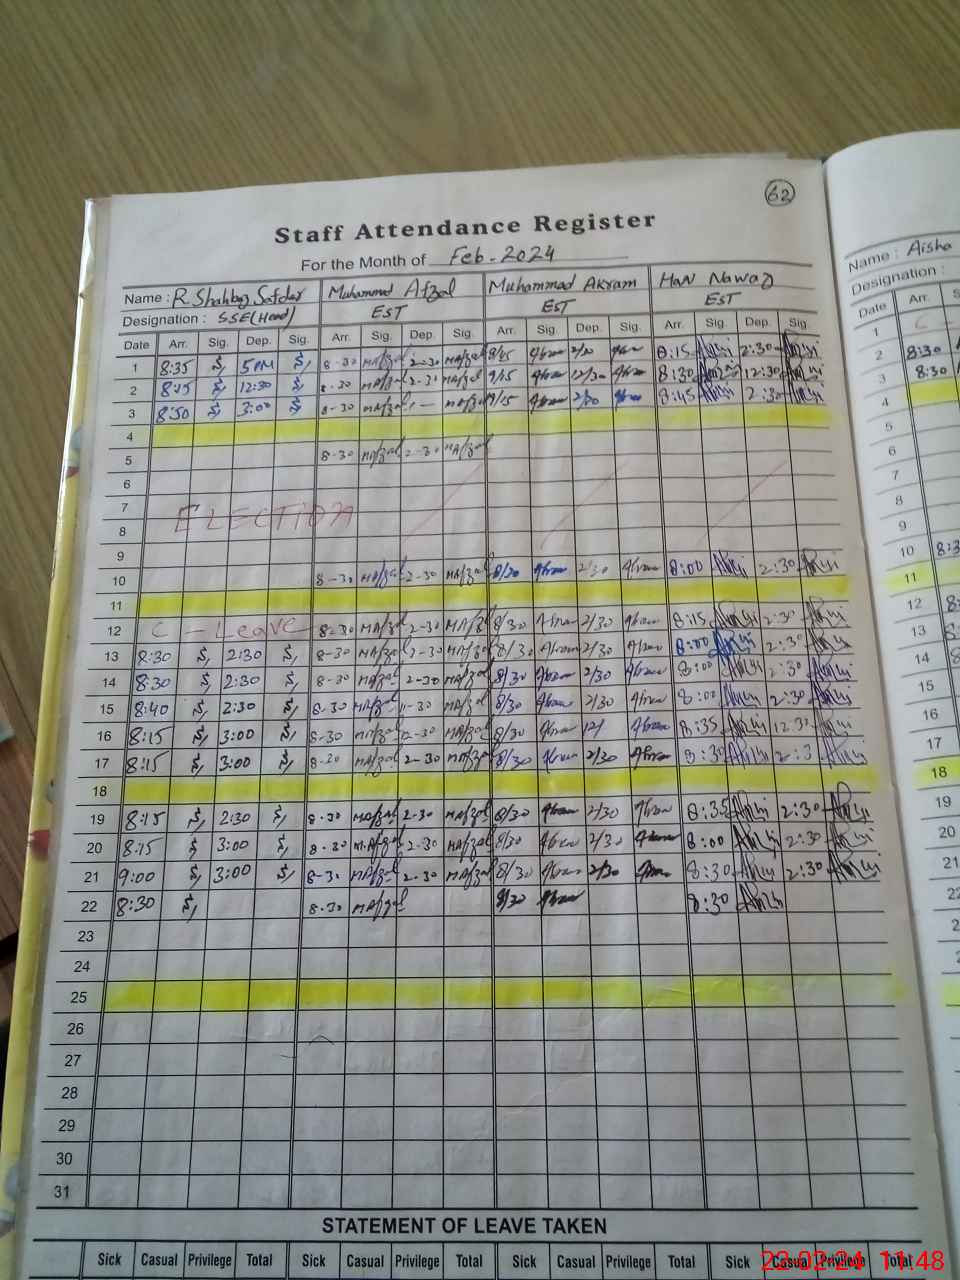 62
Staff Attendance Register
For the Month of Feb-2024
Name : R. Shahbaz Safder Muhammad Afzal Muhammad Akram Haq Nawaz
Designation : SSE(Head) EST EST EST
Date Arr. Sig. Dep. Sig. Arr. Sig. Dep. Sig. Arr. Sig. Dep. Sig. Arr. Sig. Dep. Sig.
1 8:35 5PM 8-30 MAfzal 2-30 MAfzal Akram Akram 8:15 2:30
2 8:15 12:30 8-30 MAfzal 2-30 MAfzal 9/15 Akram 12/30 Akram 8:30 12:30
3 8:50 3:00 8-30 MAfzal MAfzal 9/15 Akram 2/30 Akram 8:45 2:30
4
5 8-30 MAfzal 2-30 MAfzal
6
7 ELECTION
8
9
10 8-30 MAfzal 2-30 MAfzal 8/30 Akram 2/30 Akram 8:00 2:30
11
12 C - Leave 8-30 MAfzal 2-30 MAfzal 8/30 Akram 2/30 Akram 8:15 2:30
13 8:30 2:30 8-30 MAfzal 2-30 MAfzal 8/30 Akram 2/30 Akram 8:00 2:30
14 8:30 2:30 8-30 MAfzal 2-30 MAfzal 8/30 Akram 2/30 Akram 8:00 2:30
15 8:40 2:30 8-30 MAfzal MAfzal 8/30 Akram 2/30 Akram 8:00 2:30
16 8:15 3:00 8-30 MAfzal MAfzal 8/30 Akram 12/ Akram 8:35 12:30
17 8:15 3:00 8-30 MAfzal 2-30 MAfzal 8/30 Akram 2/30 Akram 8:30 2:3
18
19 8:15 2:30 8-30 MAfzal 2-30 MAfzal 8/30 Akram 2/30 Akram 8:35 2:30
20 8:15 3:00 8-30 MAfzal 2-30 MAfzal 8/30 Akram 2/30 Akram 8:00 2:30
21 9:00 3:00 8-30 MAfzal 2-30 MAfzal 8/30 Akram 2/30 Akram 8:30 2:30
22 8:30 8-30 MAfzal 8/30 Akram 8:30
23
24
25
26
27
28
29
30
31
STATEMENT OF LEAVE TAKEN
Sick Casual Privilege Total Sick Casual Privilege Total Sick Casual Privilege Total Sick Casual Privilege Total
Name : Aisha
Designation :
Date Arr.
1 C -
2 8:30
3 8:30
4
5
6
7
8
9
10
11
12
13
14
15
16
17
18
19
20
21
22-02-24 11:48